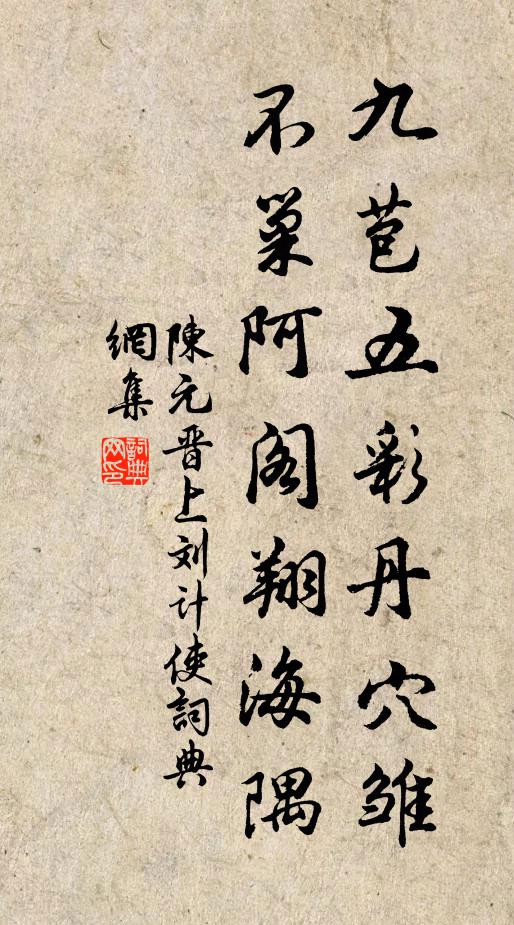 九苞五彩丹穴雏
不巢阿阁翔海隅
陳元晋上刘计使詞典
網集
詞典網印